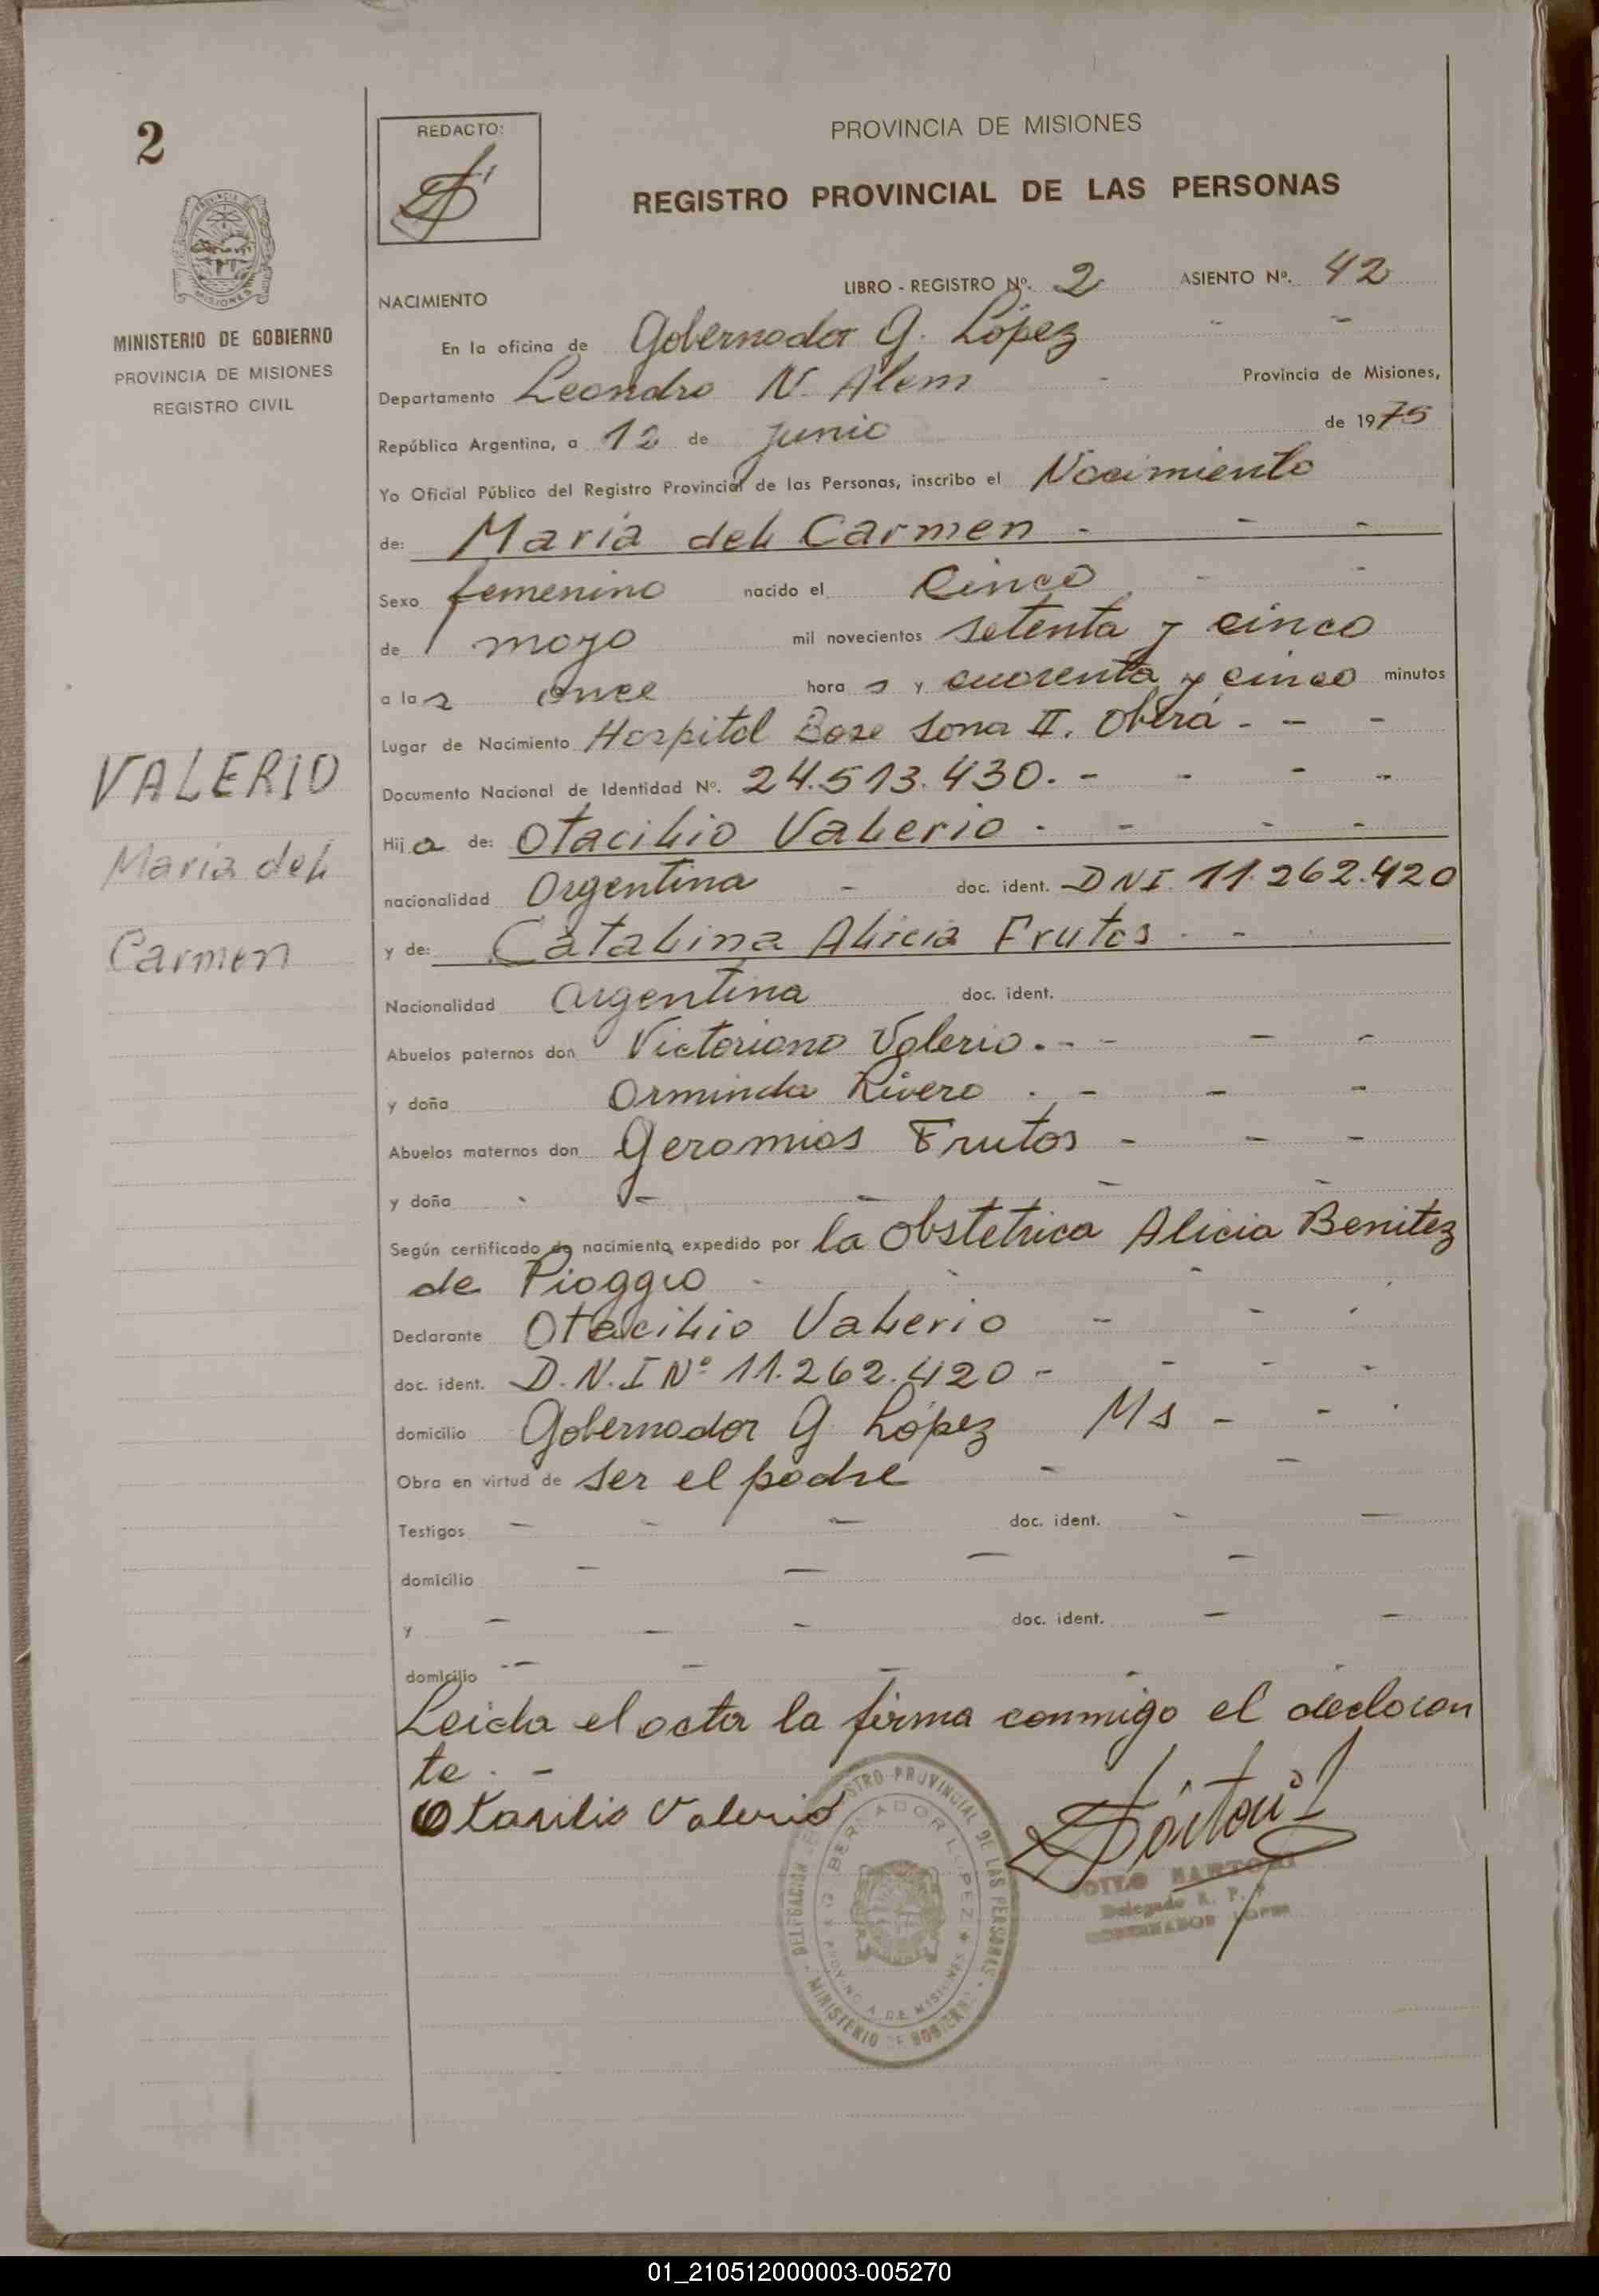 2
REDACTO:
PROVINCIA DE MISIONES
REGISTRO PROVINCIAL DE LAS PERSONAS
MISIONES
MINISTERIO DE GOBIERNO
PROVINCIA DE MISIONES
REGISTRO CIVIL
LIBRO - REGISTRO Nº. 2 ASIENTO Nº. 42
NACIMIENTO
En la oficina de Gobernador G. López - -
Departamento Leandro N. Alem - Provincia de Misiones,
República Argentina, a 12 de Junio de 1975
Yo Oficial Público del Registro Provincial de las Personas, inscribo el Nacimiento
de: María del Carmen - - -
Sexo femenino nacido el Cinco - -
de mayo mil novecientos setenta y cinco
a las once hora s y cuarenta y cinco minutos
Lugar de Nacimiento Hospital Base Sona II. Oberá - - -
Documento Nacional de Identidad Nº. 24.513.430. - - - -
Hija de: Otacilio Valerio - - - -
nacionalidad Argentina - doc. ident. DNI. 11.262.420
y de: Catalina Alicia Frutos - -
Nacionalidad argentina doc. ident.
Abuelos paternos don Victoriano Valerio. - - - -
y doña Orminda Rivero . - - -
Abuelos maternos don Geromios Frutos - - -
y doña - - - -
Según certificado de nacimiento expedido por la Obstetrica Alicia Benitez
de Pioggio - - -
Declarante Otacilio Valerio - -
doc. ident. D.N.I Nº 11.262.420 - - - -
domicilio Gobernador G López Ms - - -
Obra en virtud de ser el padre - -
Testigos - - - doc. ident. - -
domicilio - - - -
y - - - doc. ident. - -
domicilio - - - - -
Leida el acta la firma conmigo el declaran
te. -
Otasilio Valerio
VALERIO
María del
Carmen
DELEGACION REGISTRO PROVINCIAL DE LAS PERSONAS - MINISTERIO DE GOBIERNO
GOBERNADOR LOPEZ
PROVINCIA DE MISIONES
SARTORI
Delegado R. P. P.
GOBERNADOR LOPEZ
01_210512000003-005270